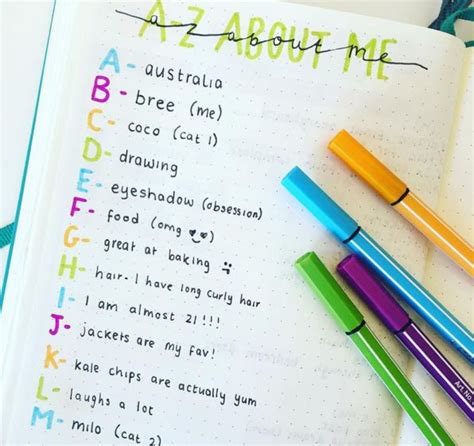 A-Z ABOUT ME
a-z about me
A- australia
B- bree (me)
C- coco (cat 1)
D- drawing
E- eyeshadow (obsession)
F- food (omg )
G- great at baking
H- hair- I have long curly hair
I- I am almost 21!!!
J- jackets are my fav!
K- kale chips are actually yum
L- laughs a lot
M- milo (cat 2)
Art. No.